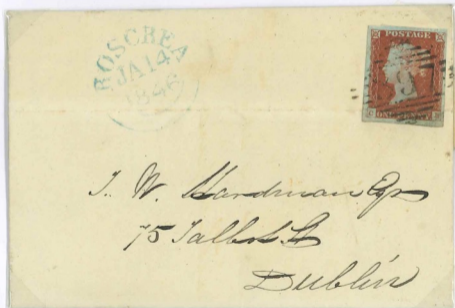 ROSCREA
JA 14
1846
POSTAGE
J. W. Hardman Esqr
75 Talbot St
Dublin